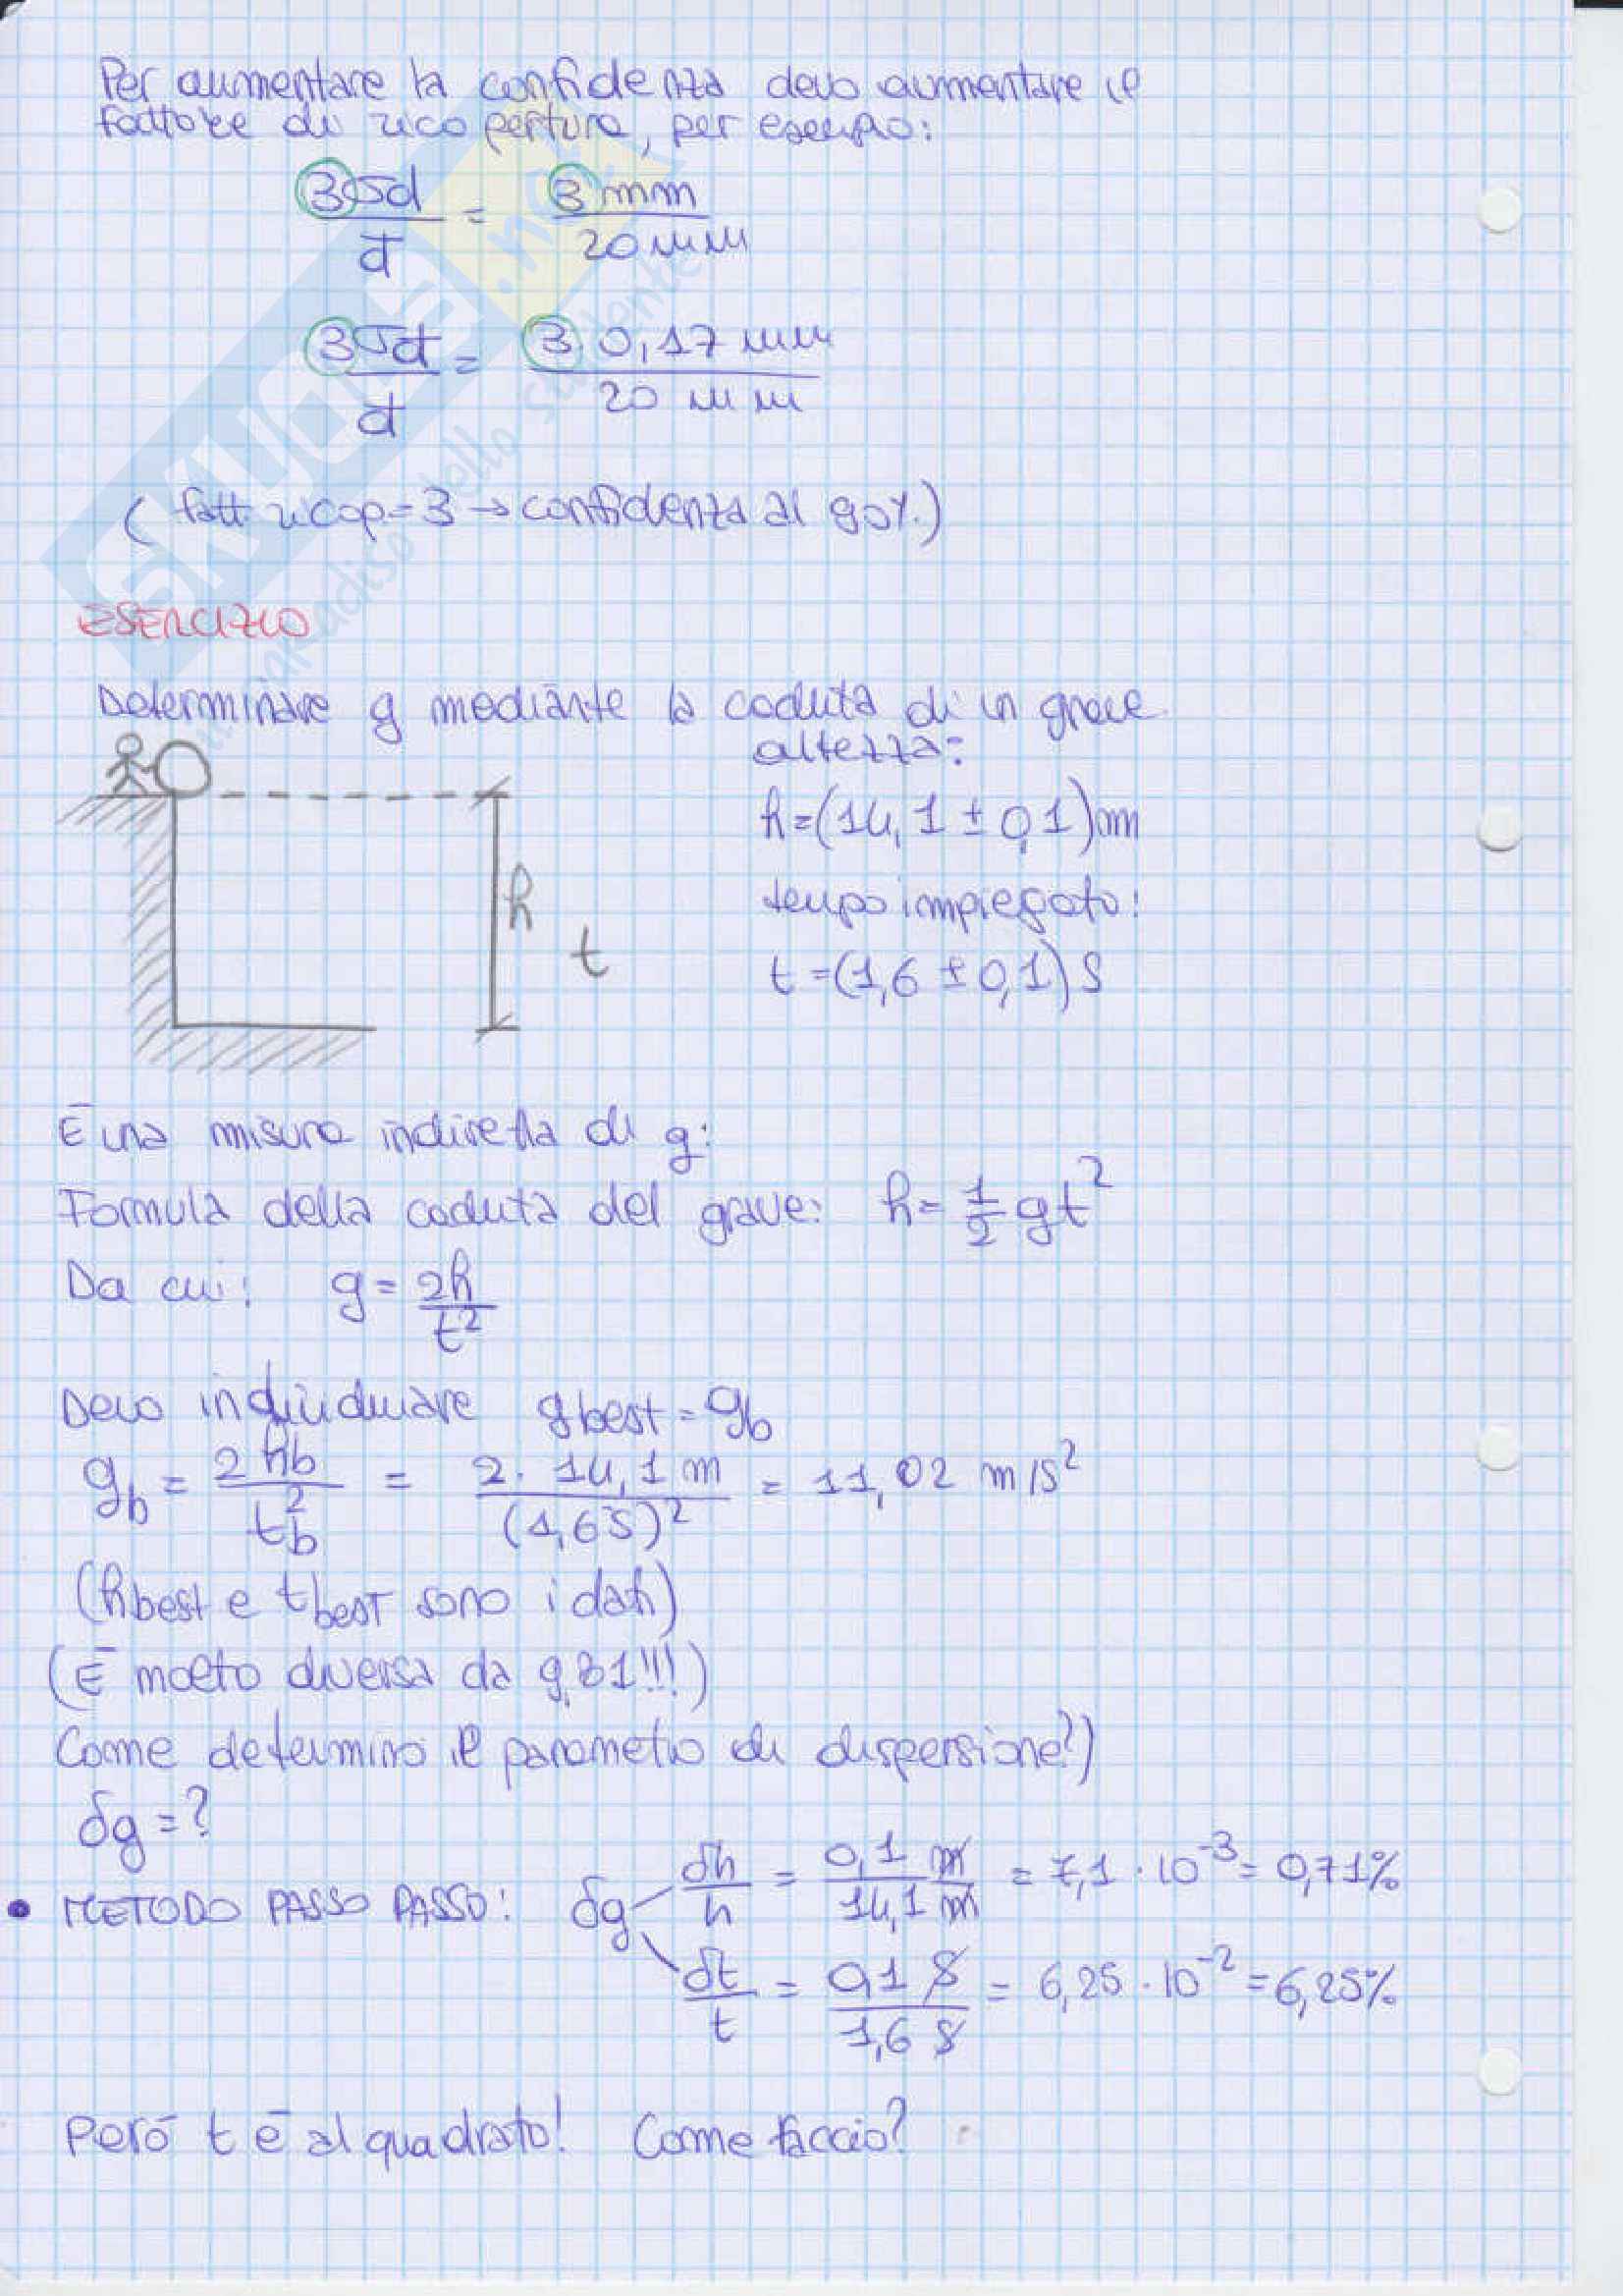 Per aumentare la confidenza devo aumentare il
fattore di ricopertura, per esempio:
3σd/d = 3mm/20mm
3σd/d = 3·0,17 mm/20 mm
(fatt. ricop = 3 → confidenza al 90%.)
ESERCIZIO
Determinare g mediante la caduta di un grave.
altezza:
h=(14,1 ± 0,1)m
tempo impiegato:
t=(1,6 ± 0,1) s
h
t
È una misura indiretta di g:
Formula della caduta del grave: h = 1/2 gt²
Da cui: g = 2h/t²
Devo individuare gbest = gb
gb = 2hb/tb² = 2·14,1 m/(1,6s)² = 11,02 m/s²
(hbest e tbest sono i dati)
(È molto diversa da 9,81!!!)
Come determino il parametro di dispersione?)
δg = ?
• METODO PASSO PASSO: δg
δh/h = 0,1 m/14,1 m = 7,1·10⁻³ = 0,71%
δt/t = 0,1 s/1,6 s = 6,25·10⁻² = 6,25%
Però t è al quadrato! Come faccio?
SKUOLA.net
il paradiso dello studente